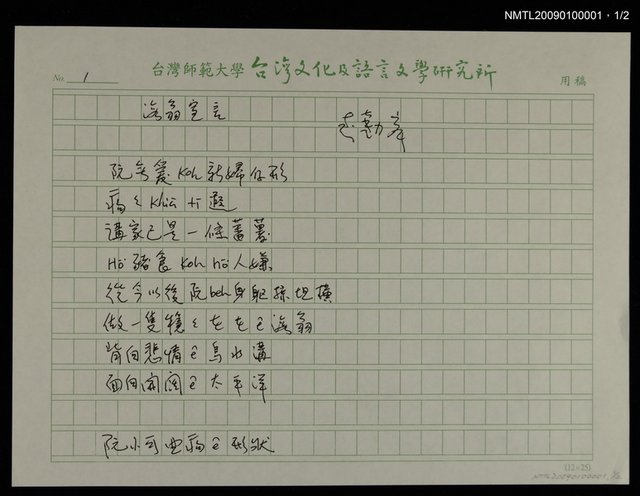 NMTL20090100001，1/2
No. 1
台灣師範大學 台灣文化及語言文學研究所 用稿
海翁宣言
李勤岸
阮無愛 Koh 新婦仔形
病病 khiā tī 遐
講家己是一條蕃薯
Hō͘ 豬食 Koh hō͘ 人嫌
從今以後阮 beh 身軀掠坦橫
做一隻穩穩在在 ê 海翁
背向悲情 ê 烏水溝
面向開闊 ê 太平洋
阮小可曲病 ê 形狀
(12×25)
NMTL20090100001